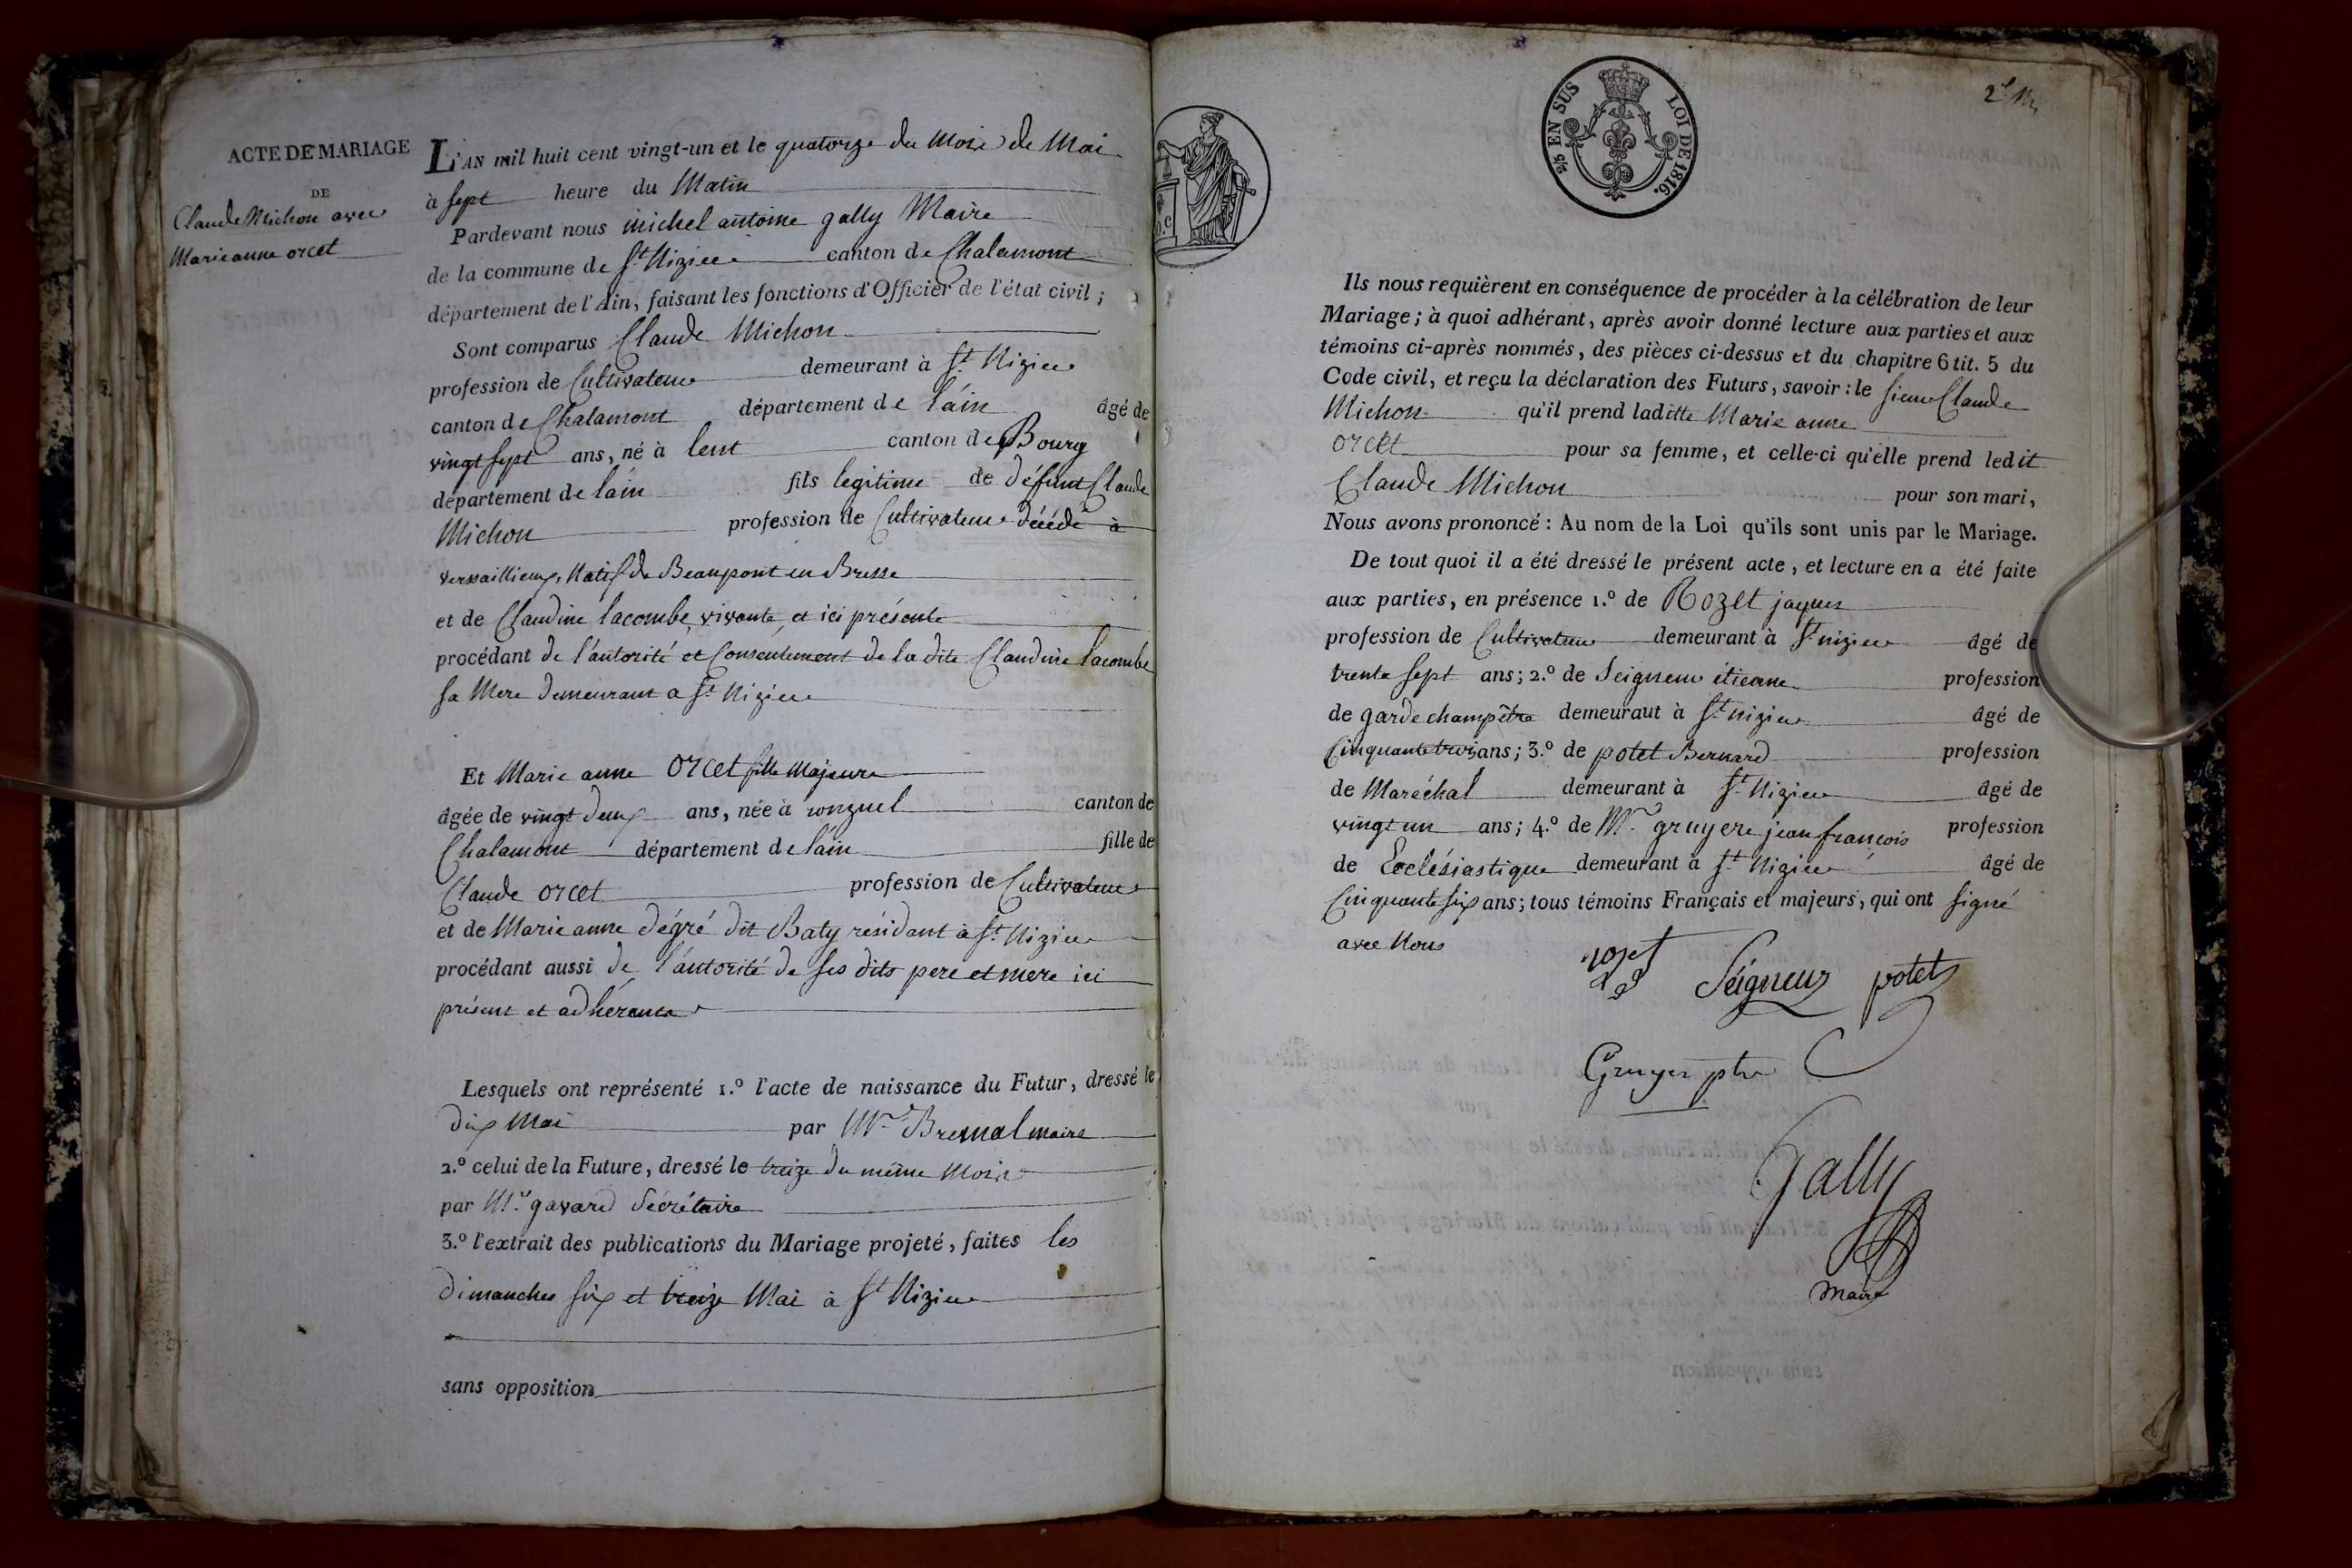 ACTE DE MARIAGE
DE
Claude Michon avec
Marie anne orcet
L'AN mil huit cent vingt-un et le quatorze du Mois de Mai
à sept heure du Matin
Pardevant nous michel antoine gally Maire
de la commune de St Nizier canton de Chalamont
département de l'Ain, faisant les fonctions d'Officier de l'état civil ;
Sont comparus Claude Michon
profession de Cultivateur demeurant à St Nizier
canton de Chalamont département de l'ain âgé de
vingt sept ans, né à lent canton de Bourg
département de l'ain fils legitime de défunt Claude
Michon profession de Cultivateur décédé à
versaillieux, Natif de Beaupont en Bresse
et de Claudine lacombe, vivante, et ici présente
procédant de l'autorité et Consentement de la dite Claudine lacombe
sa Mere demeurant a St Nizier
Et Marie anne orcet fille Majeure
âgée de vingt deux ans, née à ronzuel canton de
Chalamont département de l'ain fille de
Claude orcet profession de Cultivateur
et de Marie anne dégré dit Baty résidant à St Nizier
procédant aussi de l'autorité de ses dits pere et mere ici
présent et adhérants
Lesquels ont représenté 1.º l'acte de naissance du Futur, dressé le
dix Mai par Mr maire
2.º celui de la Future, dressé le treize du même Mois
par Mr gavard Sécrétaire
3.º l'extrait des publications du Mariage projeté, faites les
dimanches six et treize Mai à St Nizier
sans opposition
2/5 EN SUS LOI DE 1816.
Ils nous requièrent en conséquence de procéder à la célébration de leur
Mariage ; à quoi adhérant, après avoir donné lecture aux parties et aux
témoins ci-après nommés, des pièces ci-dessus et du chapitre 6 tit. 5 du
Code civil, et reçu la déclaration des Futurs, savoir : le sieur Claude
Michon qu'il prend laditte Marie anne
orcet pour sa femme, et celle-ci qu'elle prend ledit
Claude Michon pour son mari,
Nous avons prononcé : Au nom de la Loi qu'ils sont unis par le Mariage.
De tout quoi il a été dressé le présent acte, et lecture en a été faite
aux parties, en présence 1.º de Rozet jaques
profession de Cultivateur demeurant à St nizier âgé de
trente sept ans ; 2.º de Seigneur étienne profession
de garde champêtre demeuraut à St nizier âgé de
Cinquante trois ans ; 3.º de potet Bernard profession
de Maréchal demeurant à St Nizier âgé de
vingt un ans ; 4.º de Mr gruyere jean françois profession
de Ecclésiastique demeurant à St Nizier âgé de
Cinquante six ans ; tous témoins Français et majeurs, qui ont signé
avec Nous
rozet Seigneur potet
Gruyer ptre
Gally
Maire